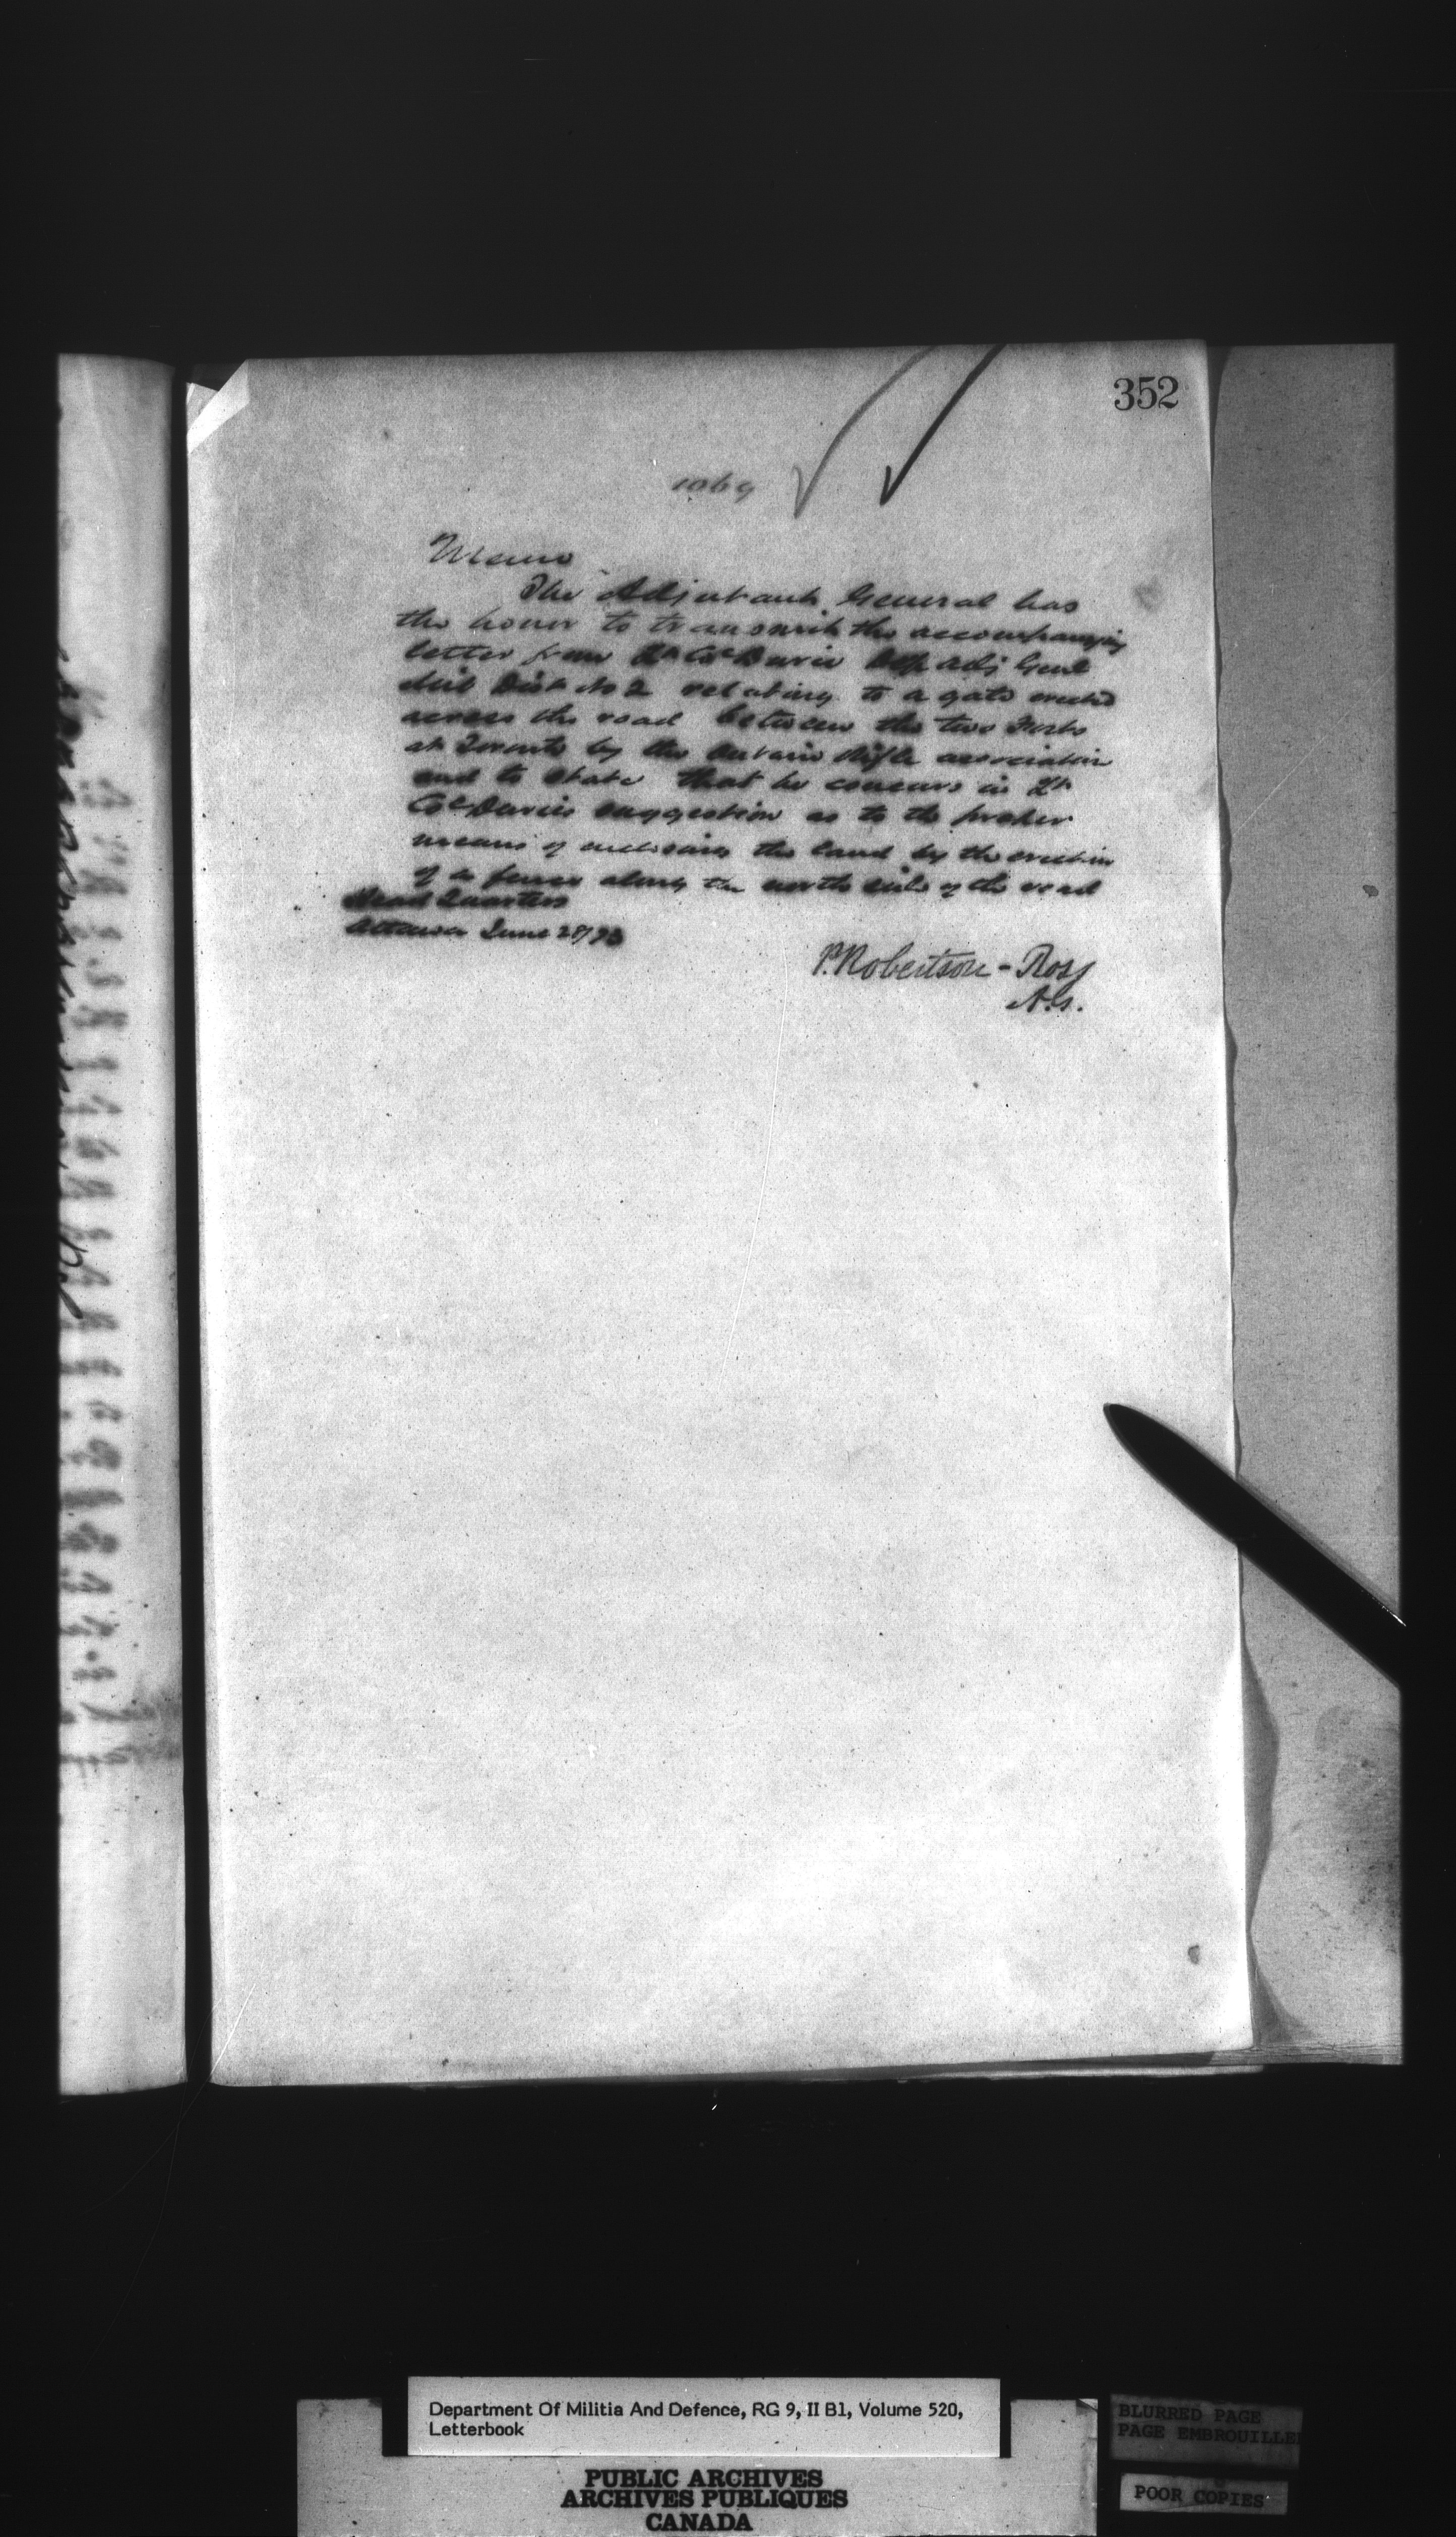 352
1069
Memo
The Adjutant General has
the honor to transmit the accompanying
letter from Lt Col Durie Dep Adj Genl
Mil Dist No 2 relating to a gate erected
across the road between the two Forts
at Toronto by the Ontario Rifle association
and to state that he concurs in Lt
Col Duries suggestion as to the proper
means of enclosing the land by the erection
of a fence along the north side of the road
Head Quarters
Ottawa June 28/73
P. Robertson-Ross
A.G.
Department Of Militia And Defence, RG 9, II B1, Volume 520,
Letterbook
PUBLIC ARCHIVES
ARCHIVES PUBLIQUES
CANADA
BLURRED PAGE
PAGE EMBROUILLEE
POOR COPIES